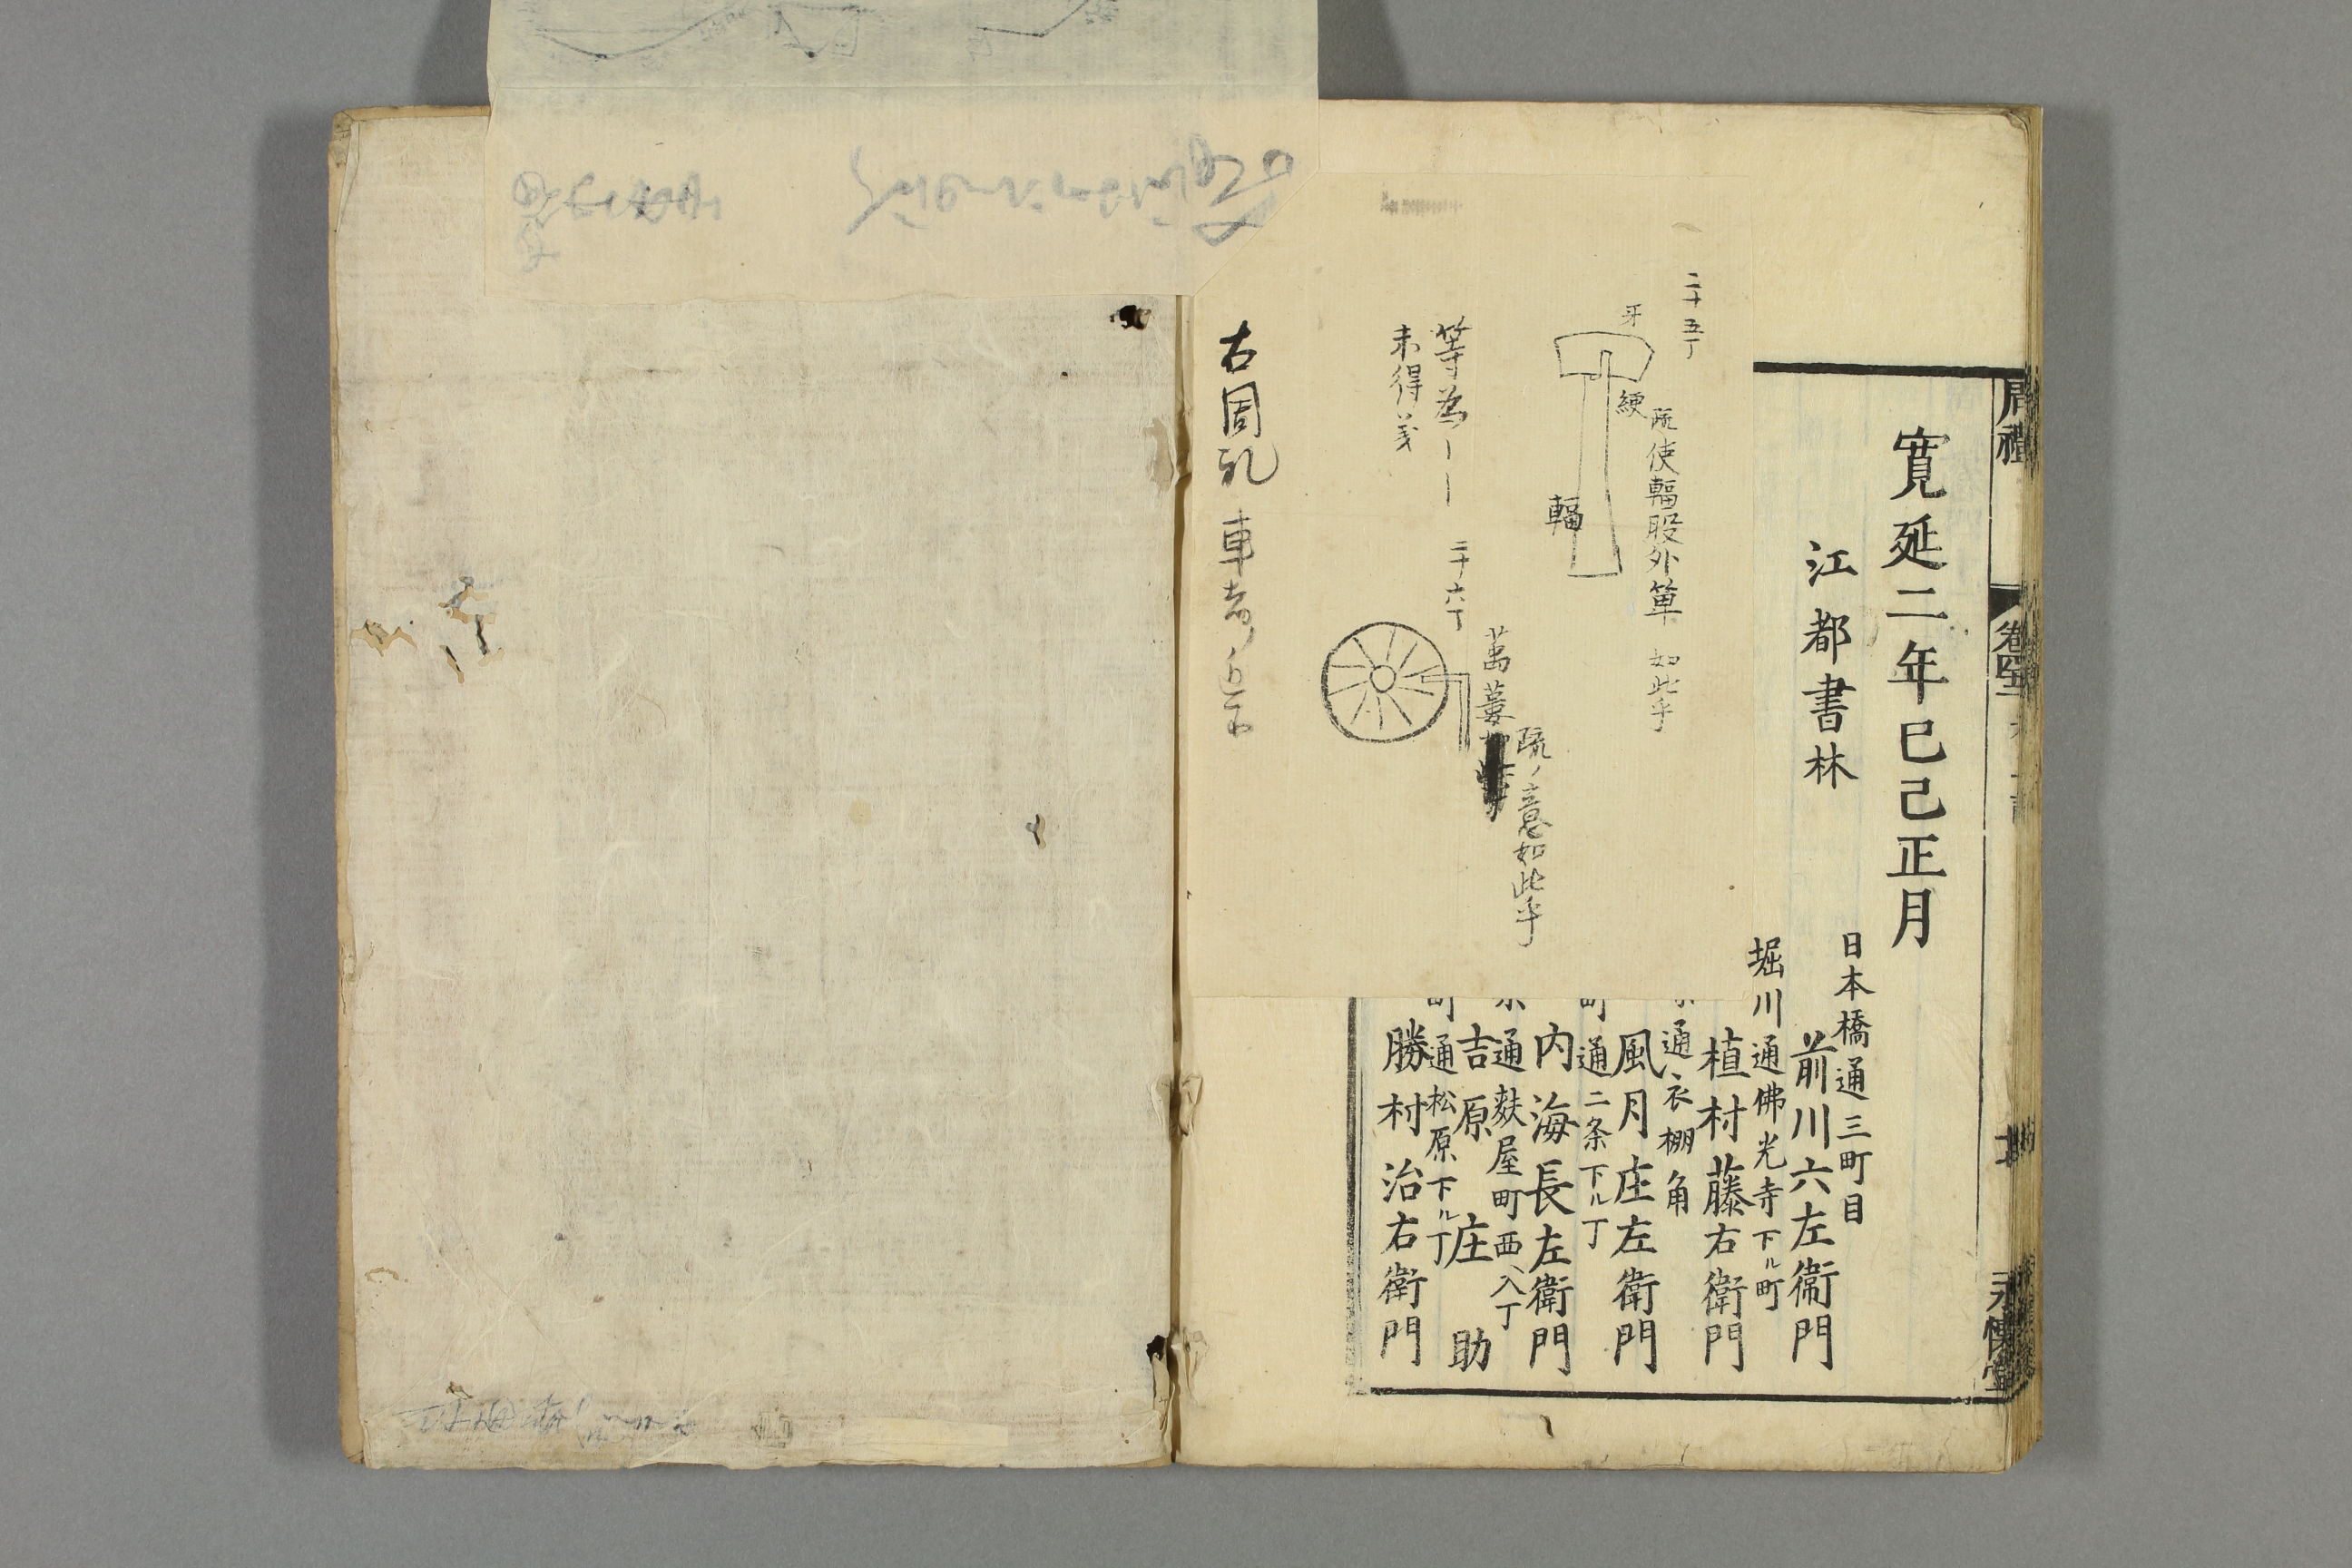 周禮
寛延二年巳己正月
江都書林
日本橋通三町目
前川六左衛門
堀川通佛光寺下ル町
植村藤右衛門
通衣棚角
風月庄左衛門
町通二条下ル丁
内海長左衛門
通麩屋町西ヘ入丁
吉原庄助
町通松原下ル丁
勝村治右衛門
二十五丁
牙
綆
疏使輻股外箄如此乎
輻
等為
未得義
二十六丁
萬蔞
疏ノ意如此乎
古周礼